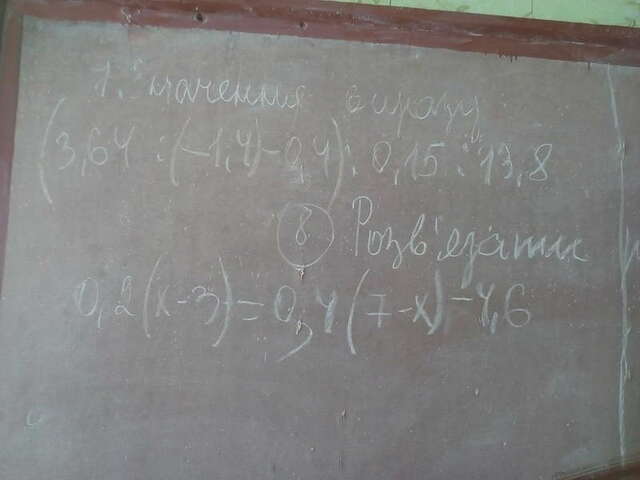 1. Значення виразу
(3,64 : (-1,4) - 0,4) : 0,15 : 13,8
8 Розв'язати
0,2(x-3) = 0,4(7-x) - 4,6